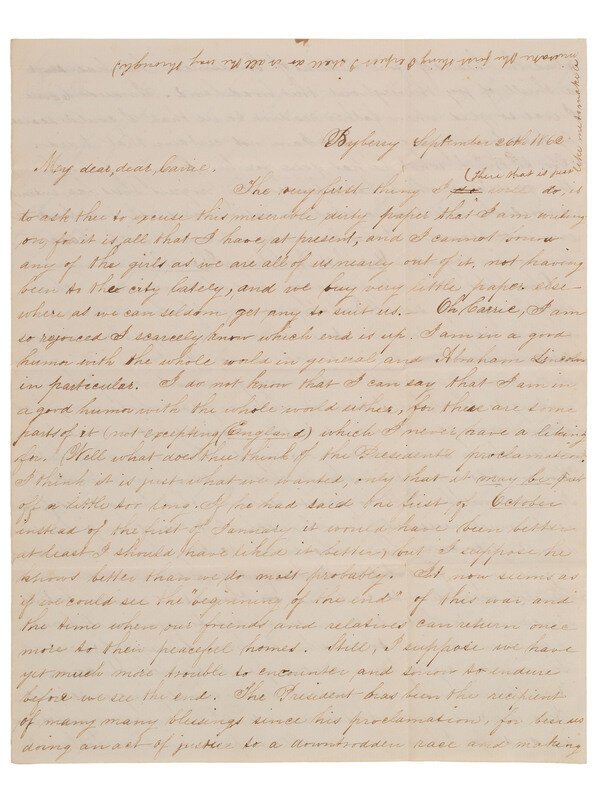 Byberry September 26th 1862
My dear, dear, Carrie,
(there that is just
like me to make a
mistake the first thing I expect I shall as is all the way through)
The very first thing I do will do, is
to ask thee to excuse this miserable dirty paper that I am writing
on, for it is all that I have, at present, and I cannot borrow
any of the girls as we are all of us nearly out of it, not having
been to the city lately, and we buy very little paper else-
where as we can seldom get any to suit us. - Oh, Carrie, I am
so rejoiced I scarcely know which end is up. I am in a good
humor with the whole world in general and Abraham Lincoln
in particular. I do not know that I can say that I am in
a good humor with the whole world either, for there are some
parts of it (not excepting England) which I never have a liking
for. Well what does thee think of the Presidents proclamation
I think it is just what we wanted, only that it may be put
off a little too long. If he had said the first of October
instead of the first of January it would have been better
at least I should have liked it better, but I suppose he
knows better than we do most probably. It now seems as
if we could see the "beginning of the end" of this war, and
the time when our friends and relatives can return once
more to their peaceful homes. Still, I suppose we have
yet much more trouble to encounter and sorrow to endure
before we see the end. The President has been the recipient
of many many blessings since his proclamation, for besides
doing an act of justice to a downtrodden race and making